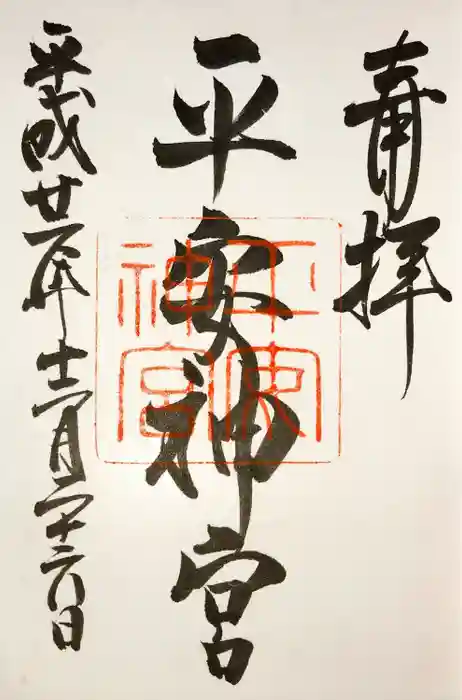 奉拝
平安神宮
平成廿一年十二月二十六日
平安神宮